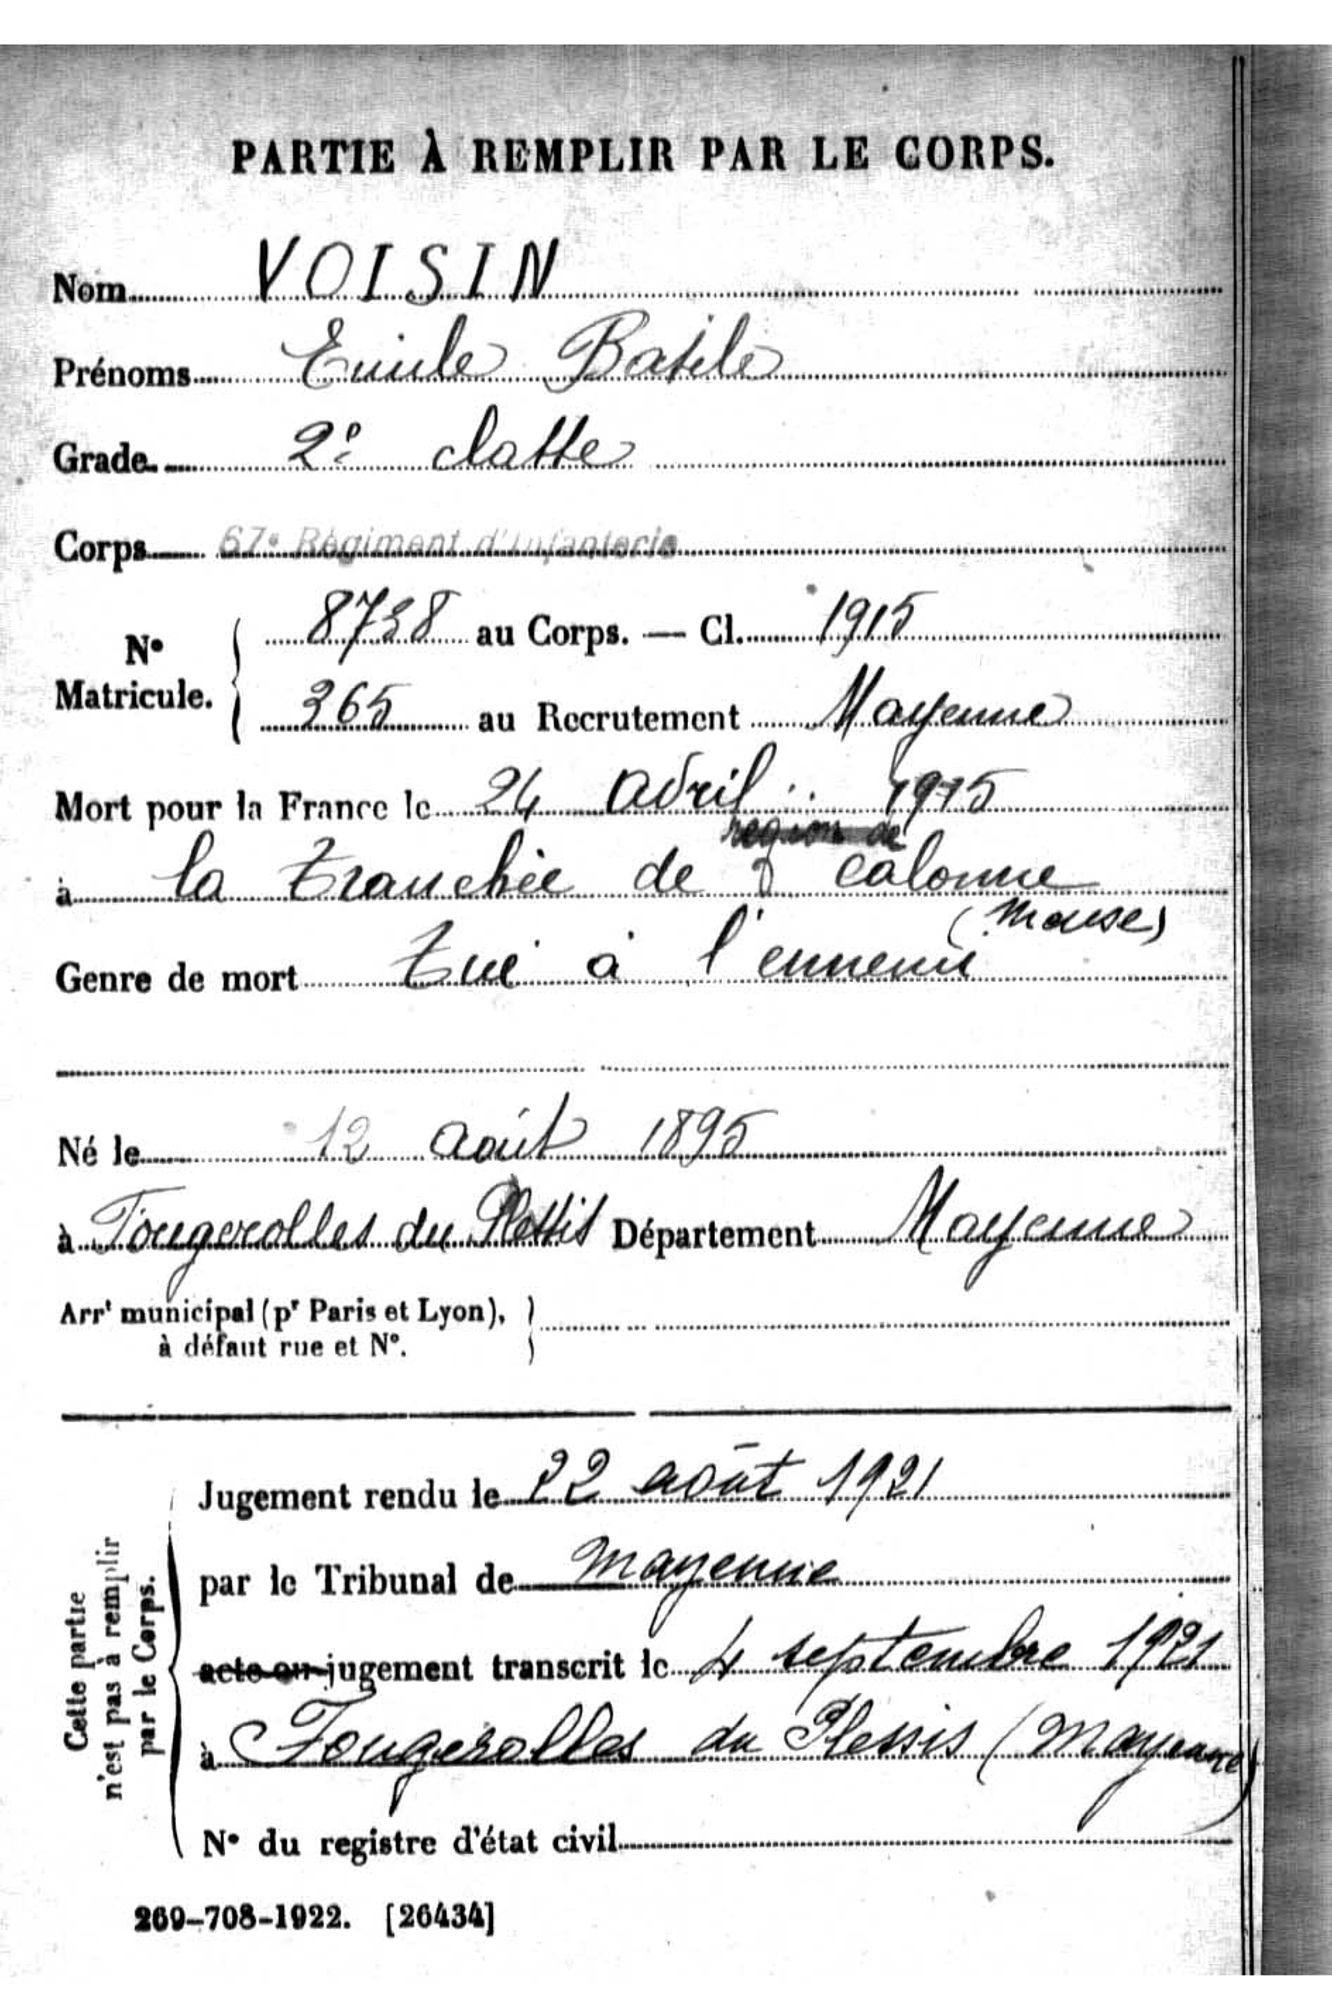 PARTIE À REMPLIR PAR LE CORPS.
Nom VOISIN
Prénoms Emile Basile
Grade 2e classe
Corps 67e Régiment d'Infanterie
N° Matricule. 8738 au Corps. — Cl. 1915
365 au Recrutement Mayenne
Mort pour la France le 24 avril 1915
région de
à la tranchée de calonne
(Meuse)
Genre de mort Tué à l'ennemi
Né le 12 août 1895
à Fougerolles du Plessis Département Mayenne
Arrt municipal (pr Paris et Lyon),
à défaut rue et N°.
Cette partie
n'est pas à remplir
par le Corps.
Jugement rendu le 22 août 1921
par le Tribunal de Mayenne
acte ou jugement transcrit le 4 septembre 1921
à Fougerolles du Plessis (Mayenne)
N° du registre d'état civil
269-708-1922. [26434]